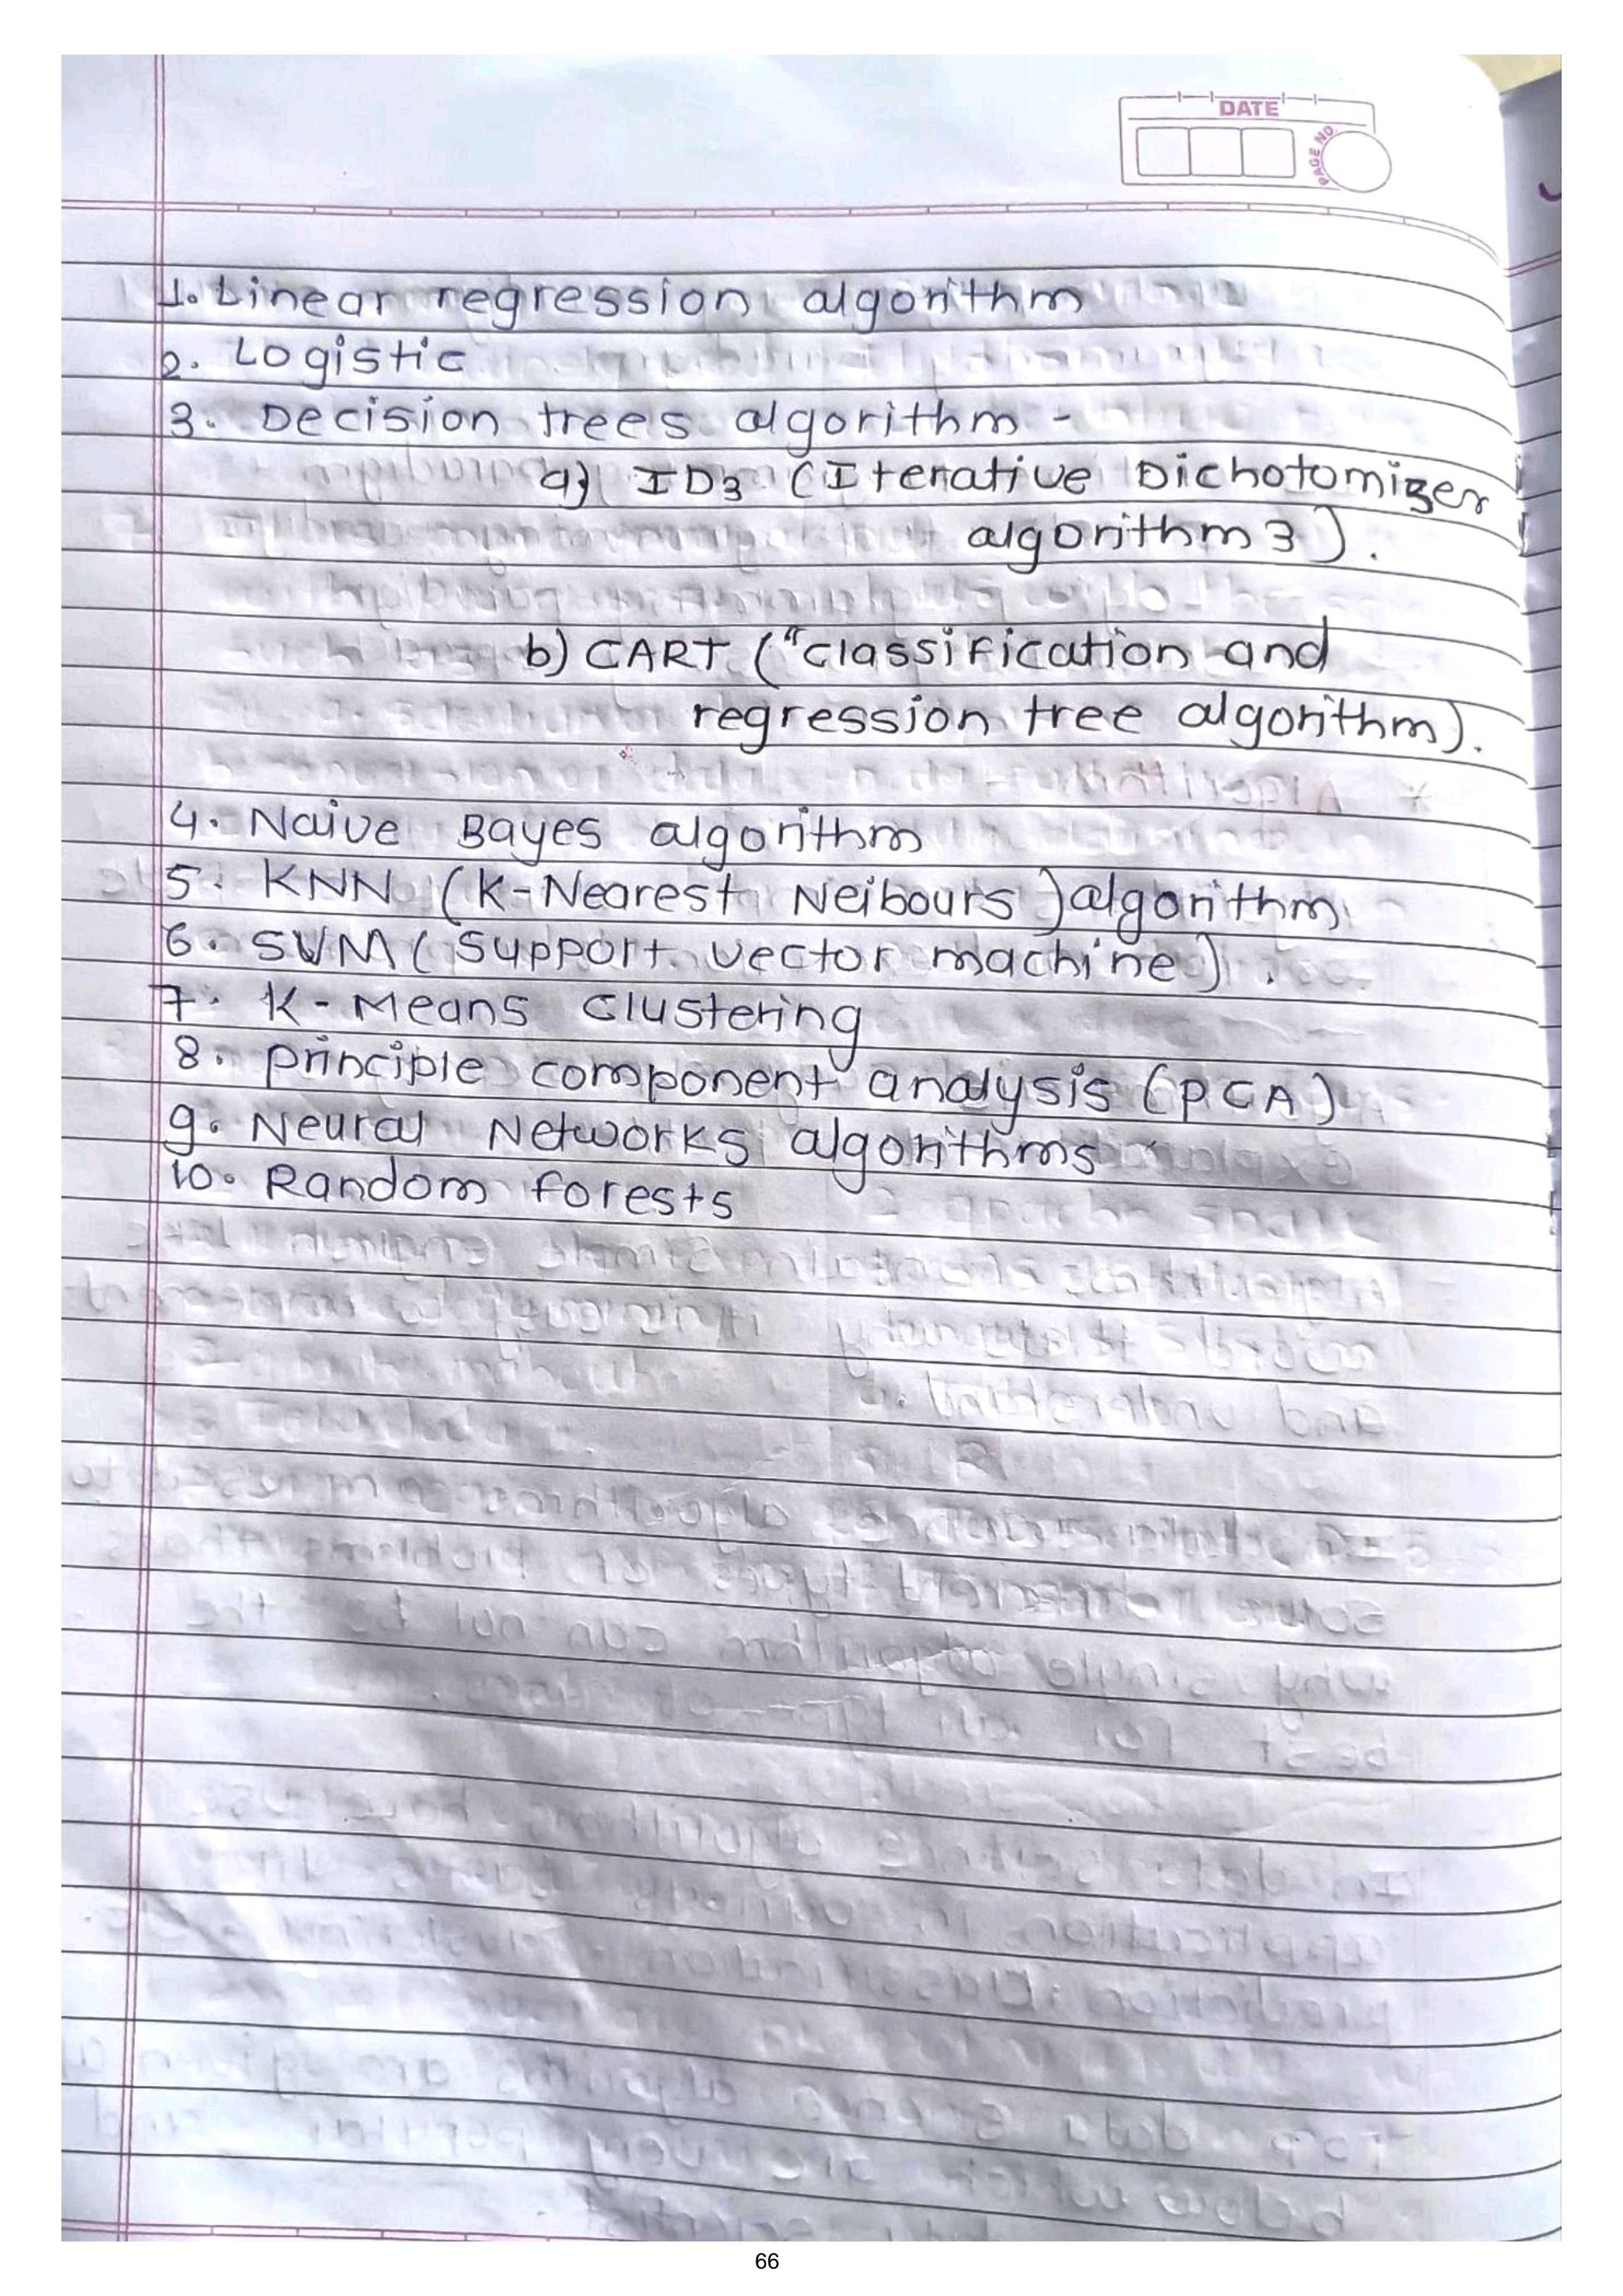 DATE
PAGE NO.
1. Linear regression algorithm
2. Logistic
3. Decision trees algorithm -
a) ID3 (Iterative Dichotomizer
algorithm 3).
b) CART ("classification and
regression tree algorithm).
4. Naive Bayes algorithm
5. KNN (K-Nearest Neibours) algorithm
6. SVM (Support vector machine).
7. K-Means clustering
8. principle component analysis (PCA)
9. Neural Networks algorithms
10. Random forests
66